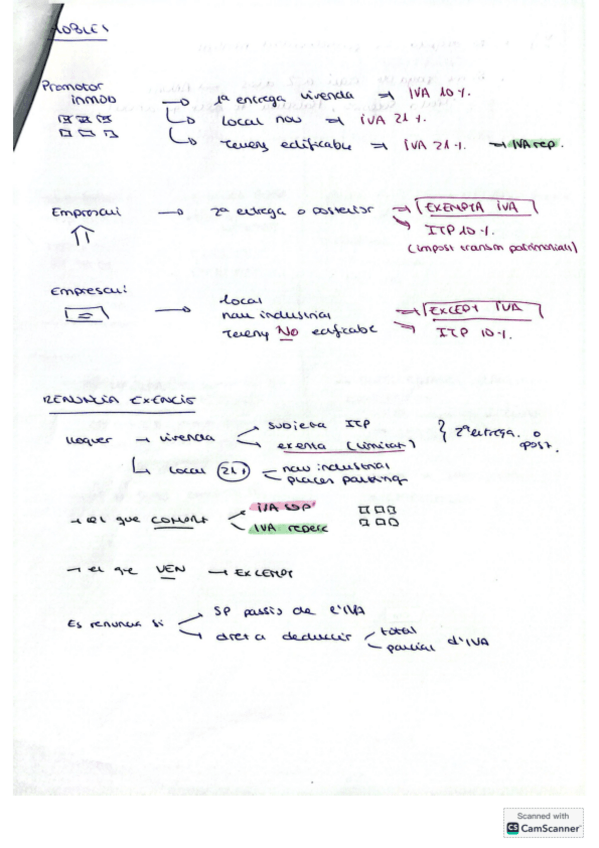 MOBLES
Promotor
inmob → 1ª entrega vivenda → IVA 10%
local nou → IVA 21%
terreny edificable → IVA 21% → IVA rep.
Empresari → 2ª entrega o posterior → EXEMPTA IVA
ITP 10%
(impost transm patrimonials)
Empresari
local
→ nau industrial → EXEMPT IVA
terreny NO edificable → ITP 10%
RENUNCIA EXENCIÓ
lloguer → vivenda
subjecta ITP
exenta (limitat)
} 2ª entrega o post.
local 21%
nau industrial
places parking
→ el que COMPRA
IVA sop
IVA reperc
→ el que VEN → EXEMPT
Es renuncia si
SP passiu de l'IVA
dret a deduir
total
parcial d'IVA
Scanned with
CS CamScanner